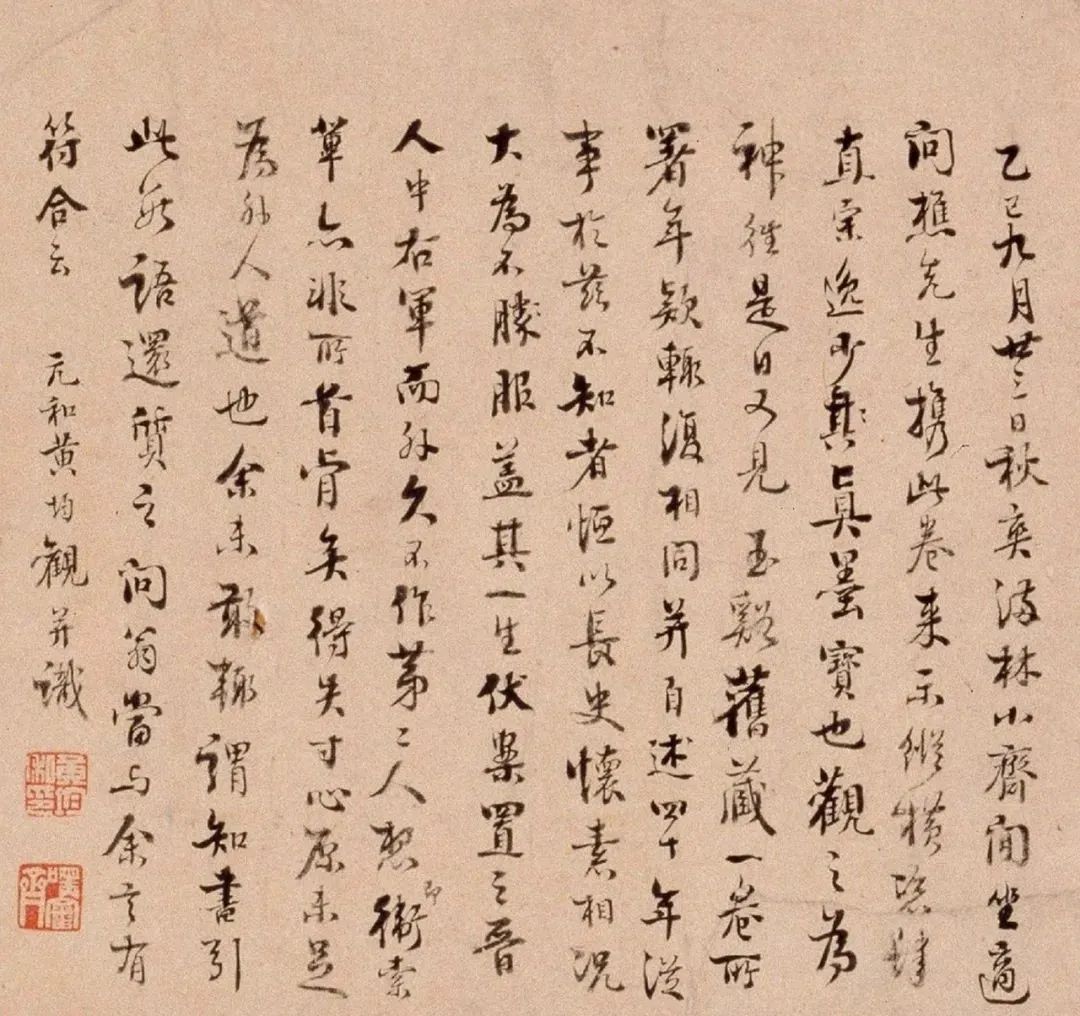 乙巳九月廿三日秋爽满林小齋閒坐適
问樵先生攜此卷来示縱横恣肆
直宗逸少艸真墨寶也觀之为
神往是日又見玉谿舊藏一卷所
署年款輒復相同并自述四十年從
事於茲不知者恒以長史懷素相况
大為不勝服盖其一生伏案置之晋
人中右軍而外久不作第二人想即衛索
草亦非所肯肯矣得失寸心原未足
為外人道也余未敢輒謂知書引
此數語還質之问翁當与余言有
符合云 元和黄均觀并識